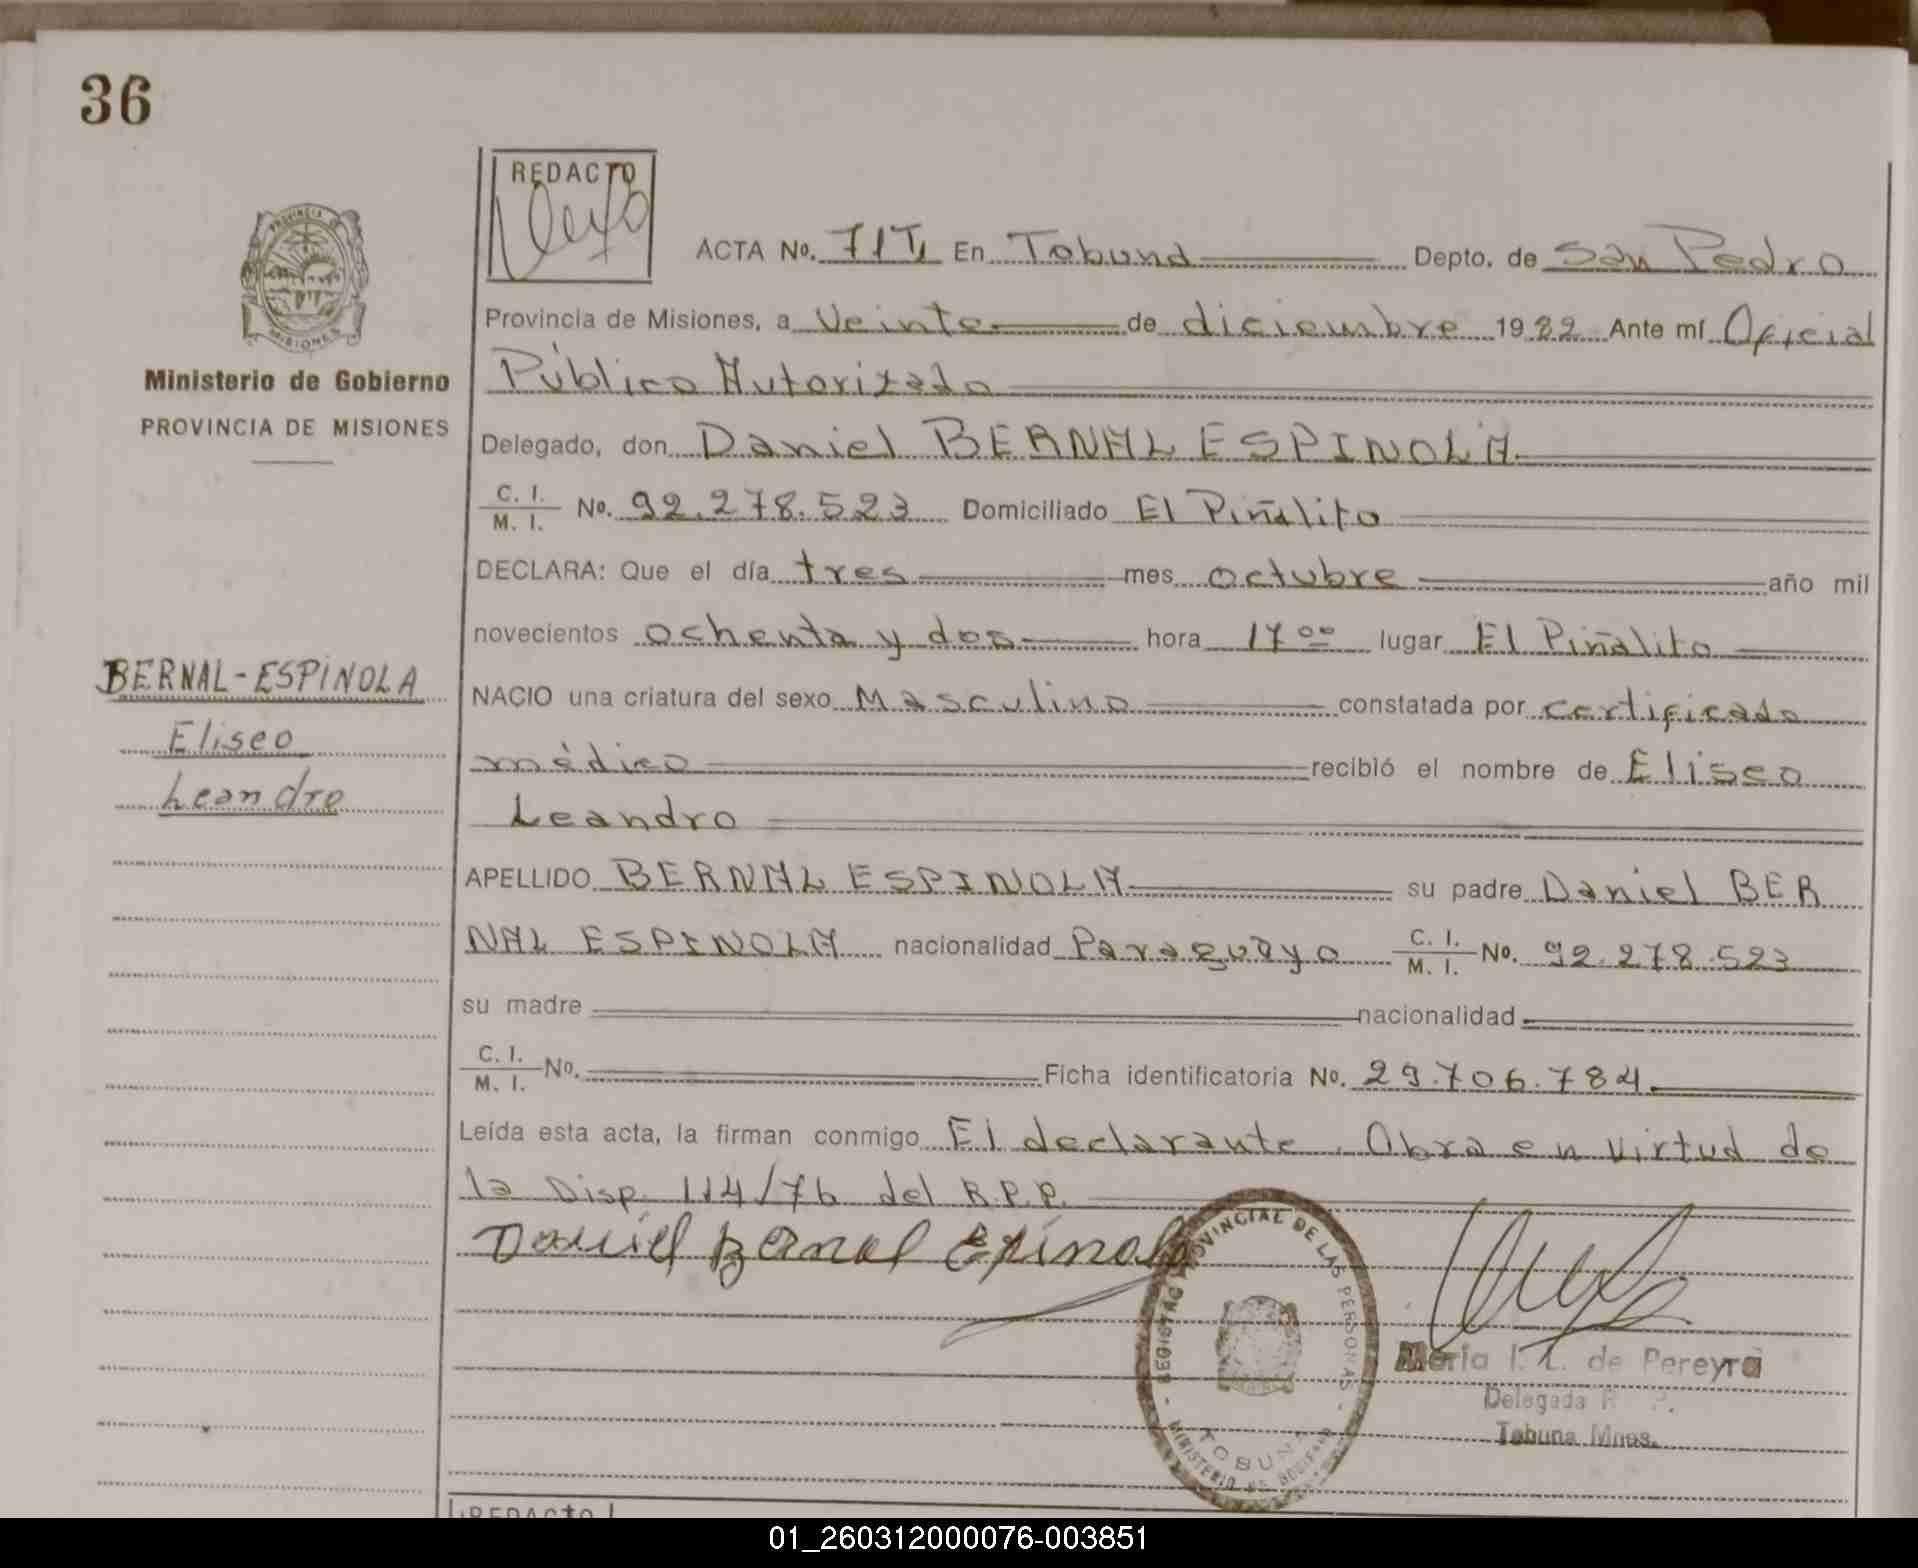 36
REDACTO
ACTA No. 71 T1 En Tobuna Depto. de San Pedro
PROVINCIA DE
MISIONES
Provincia de Misiones, a Veinte de diciembre 1982 Ante mí Oficial
Ministerio de Gobierno
Público Autorizado
PROVINCIA DE MISIONES
Delegado, don Daniel BERNAL ESPINOLA
C. I. / M. I. No. 92.278.523 Domiciliado El Piñalito
DECLARA: Que el día tres mes octubre año mil
novecientos ochenta y dos hora 17 00 lugar El Piñalito
BERNAL-ESPINOLA
NACIO una criatura del sexo Masculino constatada por certificado
Eliseo
médico recibió el nombre de Eliseo
Leandro
Leandro
APELLIDO BERNAL ESPINOLA su padre Daniel BER
NAL ESPINOLA nacionalidad Paraguayo C. I. / M. I. No. 92.278.523
su madre nacionalidad
C. I. / M. I. No. Ficha identificatoria No. 29.706.784
Leída esta acta, la firman conmigo El declarante. Obra en virtud de
la Disp. 114/76 del R.P.P.
Daniel Bernal Epinola
REGISTRO PROVINCIAL DE LAS PERSONAS
TOBUNA
MINISTERIO DE GOBIERNO
Maria I. L. de Pereyra
Delegada R. P.
Tobuna Mnes.
REDACTO
01_260312000076-003851